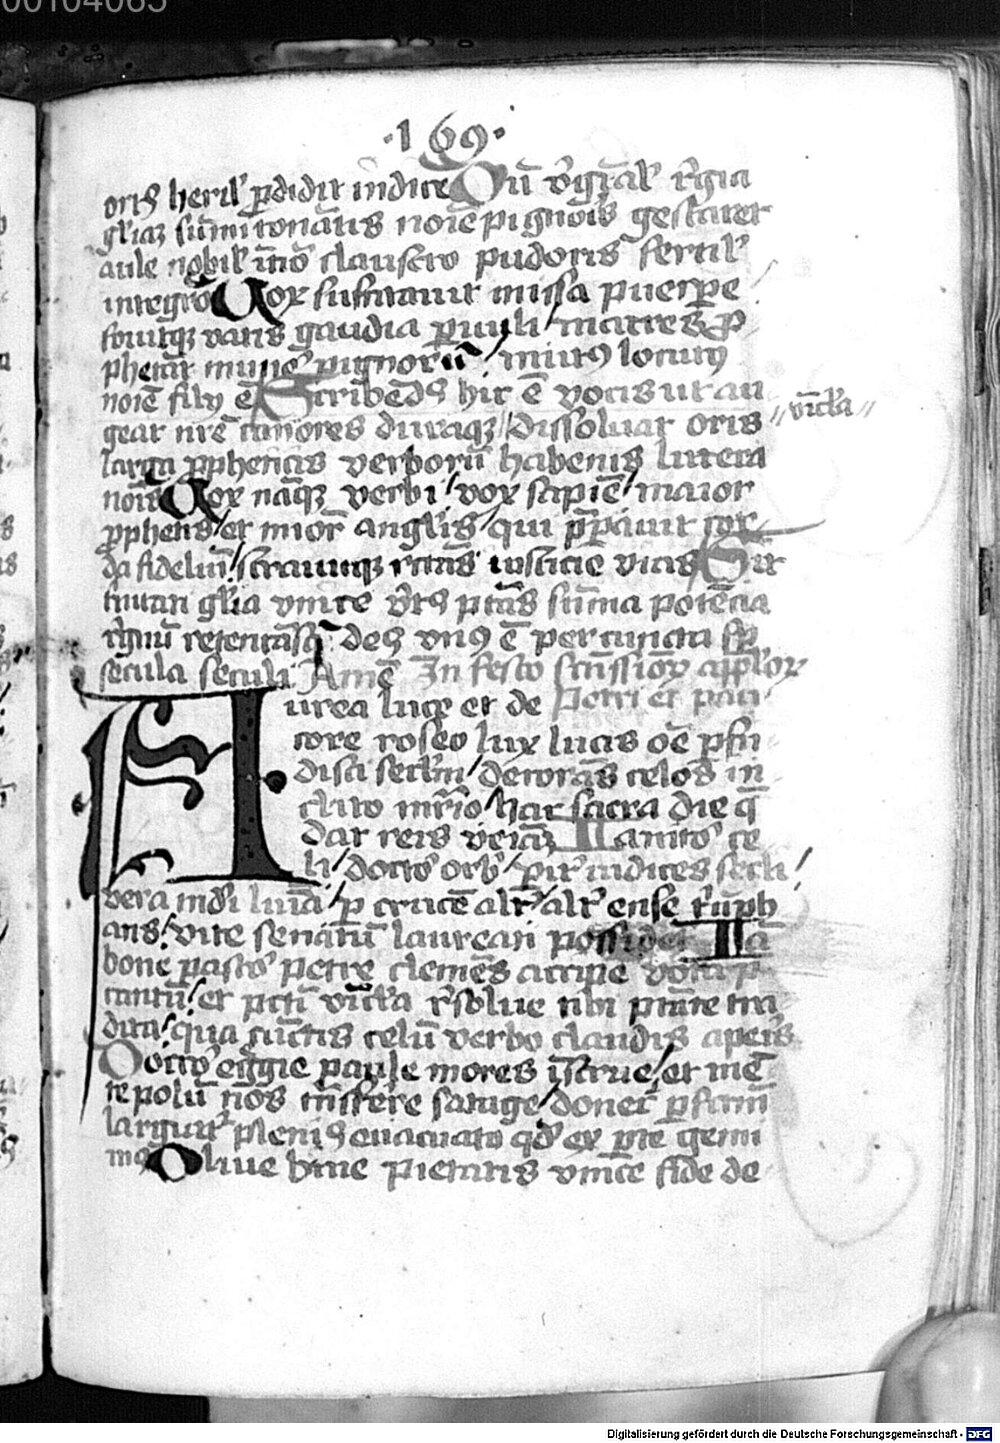 00104065
·169·
oris heril' p̄didit indice Cū v̄gīal' r̄gia
gliaʒ sūmi tonātis noīe pignoris gestaret
aule nobil' it̄io claustro pudoris fertil'
integro Vox suscitauit missa puerpe
fouitqʒ vatis gaudia puuli / matres ꝓ
phetāt muñe pignorū / mut9 locut9
noīe filij ē Scribēdis hic ē vocis ut an
geat nr̄e canores duraqʒ / dissoluat oris // vīcla //
larga ꝓpheticis verborū habenis lutera
Vox nāqʒ verbi / vox sapiē / maior
ꝓphetis / et mior̄ anglis / qui p̄pauit cor
da fideliū / strauitqʒ rectas iusticie vias Sit
trinitati glīa vnice v̄t9 ptās sūma potēcia
r̄gnū retentās q̄ de9 vn9 ē per cuncta sp̄
secula seculi Amē In festo scissiorꝝ appl'orꝝ
urea luce et de Petri et pauli
core roseo lux lucis oē pfu
disti seclm / decorās celos in
clito mr̄io / hac sacra die q̄
dat reis veiāʒ Ianitor ce
li / doctor orb' / pit' iudices secli
vera mdi luīa / p crucē alt' / alt' ense t'ūph
ans / vite senatū laureati possidet Iā
bone pastor petre clemēs accipe vota p
cantū / et pcti vīcla r̄solue tibi ptāte tra
dita / qua cūctis celū verbo claudis aperis
Doctor egregie paule mores īstrue / et mē
te polū nos trāsferre satage / donec pfctm̄
largiat' plenius euacuato qd' ex pte gerim
mus Oliue bine pietatis vnice fide de
Digitalisierung gefördert durch die Deutsche Forschungsgemeinschaft - DFG